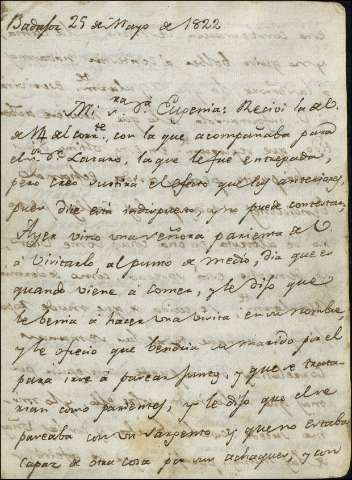 Badajoz 25 de Mayo de 1822
Mi S.ra D.a Eugenia: Recivi la de V.
de 14 del corr.te, con la que acompañaba para
el S.r D.n Lazaro, la que le fue entregada,
pero creo surtirá el efecto que las anteriores,
pues dice está indispuesto, y no puede contestar,
Ayer vino una señora parienta de V.
á visitarlo al punto de medio dia que es
quando viene á comer, y le dijo que
le benia á hacer una visita en su nombre,
y le ofrecio que bendria su marido por el
para irse á pasear juntos, y que se trata-
rian como parientes, y le dijo que el se
paseaba con un Sargento y que no estaba
capaz de otra cosa por sus achaques, y con